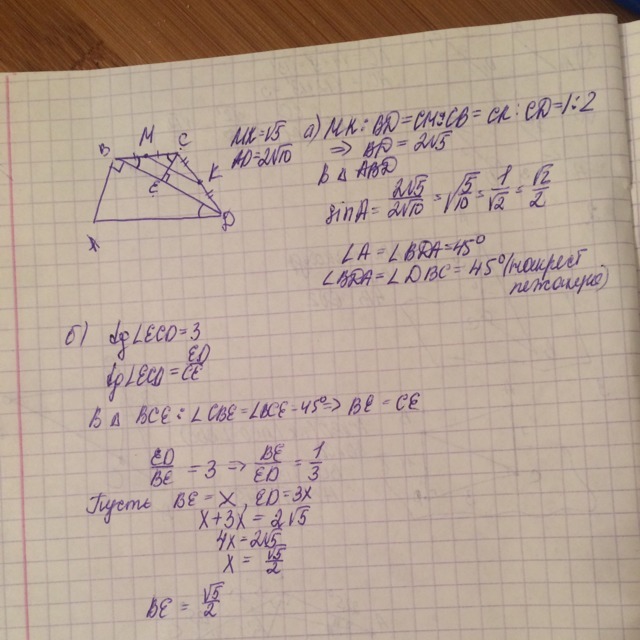 B M C K E D A
MK=√5
AD=2√10
а) MK:BD=CM:CB=CK:CD=1:2
⇒ BD=2√5
В Δ ABD
sinA= 2√5/2√10 = √5/10 = 1/√2 = √2/2
∠A=∠BDA=45°
∠BDA=∠DBC=45° (накрест
лежащие)
б) tg∠ECD=3
tg∠ECD= ED/CE
В Δ BCE: ∠CBE=∠BCE=45°⇒ BE=CE
ED/BE = 3 ⇒ BE/ED = 1/3
Пусть BE=x, ED=3x
x+3x=2√5
4x=2√5
x= √5/2
BE= √5/2